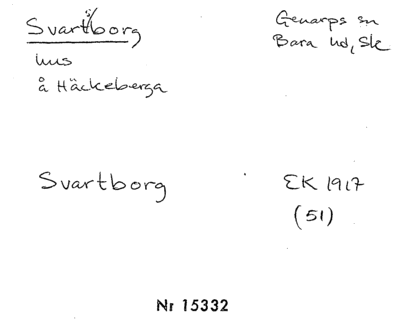 Svartborg
Genarps sn
Bara hd, Sk
hus
å Häckeberga
Svartborg
EK 1917
(51)
Nr 15332